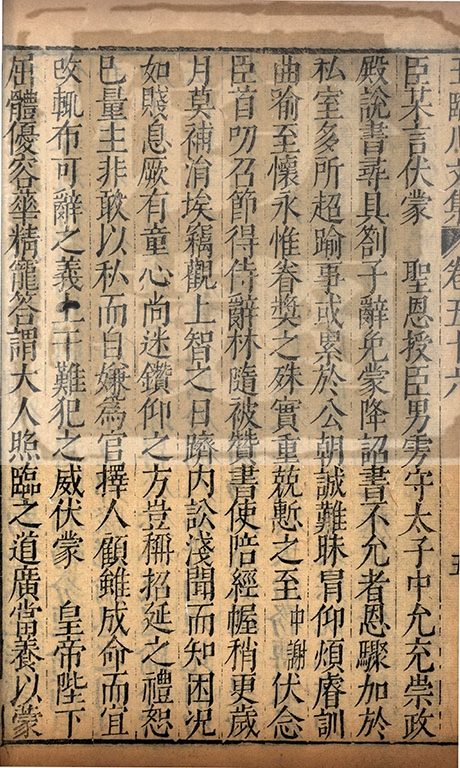 王臨川文集 卷五十六 五
臣某言伏蒙 聖恩授臣男雱守太子中允充崇政
殿說書尋具劄子辭免蒙降詔書不允者恩驟加於
私室多所超踰事或累於公朝誠難昧冒仰煩睿訓
曲喻至懷永惟眷獎之殊實重兢慙之至中謝伏念
臣首叨召節得侍辭林隨被贊書使陪經幄稍更歲
月莫補涓埃竊觀上智之日躋內訟淺聞而知困況
如賤息厥有童心尚迷鑽仰之方豈稱招延之禮恕
已量主非敢以私而自嫌為官擇人顧雖成命而宜
改輒布可辭之義上干難犯之威伏蒙 皇帝陛下
屈體優容華精籠答謂大人照臨之道廣當養以蒙